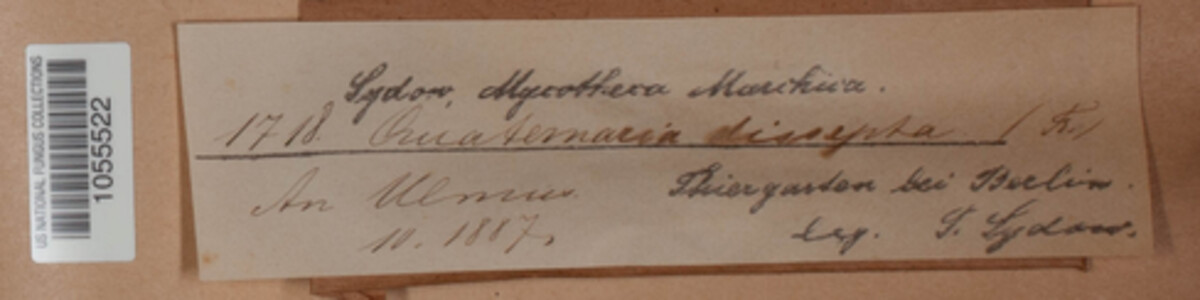 US NATIONAL FUNGUS COLLECTIONS
1055522
Sydow, Mycotheca Marchica.
1718. Quaternaria dissepta (Fr.)
An Ulmus.
10. 1887.
Thiergarten bei Berlin.
leg. P. Sydow.